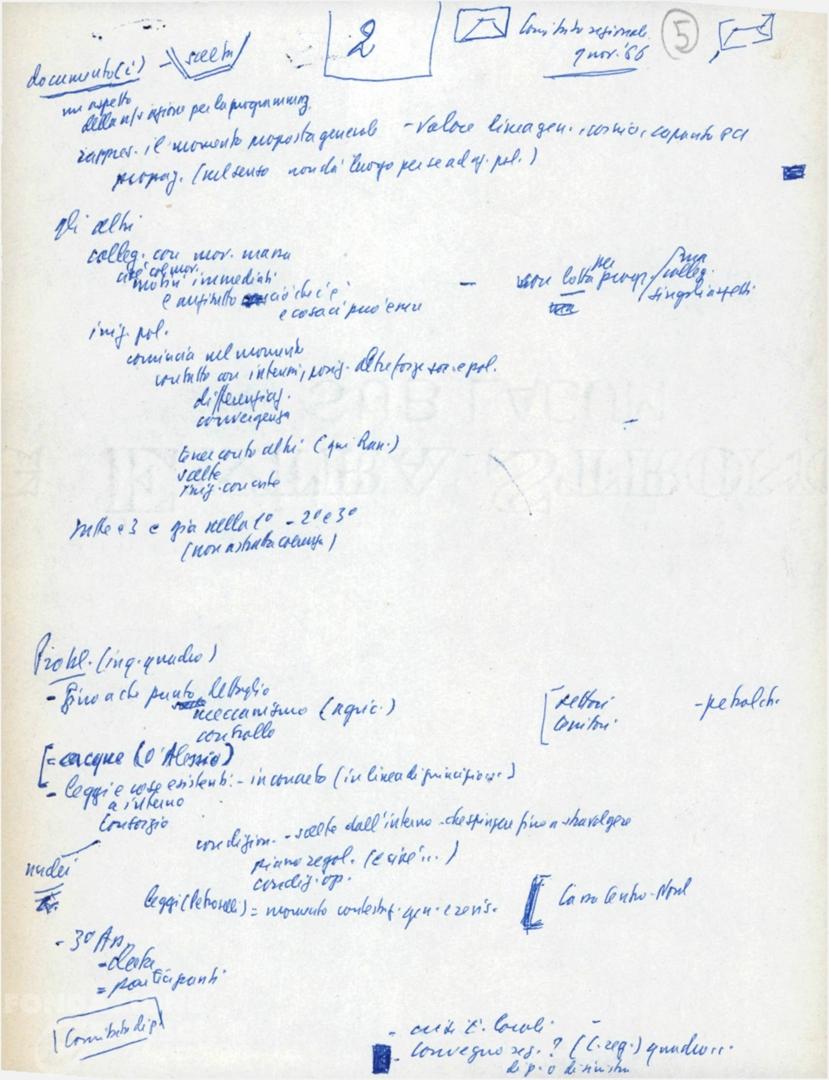 2
Comitato regionale
9 nov. '66
5
documento(i) - scelta
un aspetto
della ns/ azione per la programmaz.
rappres. il momento proposta generale - valore linea gen.
propag. (nel senso non dà luogo per se ad az. pol.)
gli altri
colleg. con mov. massa
cioè col mov.
motivi immediati
e anzitutto ciò che c'è
e cosa ci può essere
- non lotta per progr. / ma colleg.
singoli aspetti
iniz. pol.
comincia nel momento
contatto con interessi, posiz. altre forze soc. e pol.
differenziaz.
convergenza
tener conto altri (qui Ran.)
scelte
iniz. concrete
tutte e 3 e già nella 1° - 2° e 3°
(non astratta coerenza)
Probl. (inq. quadro)
- fino a che punto dettaglio
meccanismo (agric.)
controllo
settori
- petrolch.
- acque (D'Alessio)
- leggi e cose esistenti: - in concreto (in linea di principio
a interno
Consorzio
condizion. - scelte dall'interno - che spingere fino a stravolgere
piano regol.
condiz. op.
nuclei
leggi (Petroselli) = momento contestaz. gen. e revis.
Cassa Centro-Nord
- 3° An.
- date
= partecipanti
- crisi E. locali
- convegno reg. ? (C. reg.) quadro
di p. o di sinistra